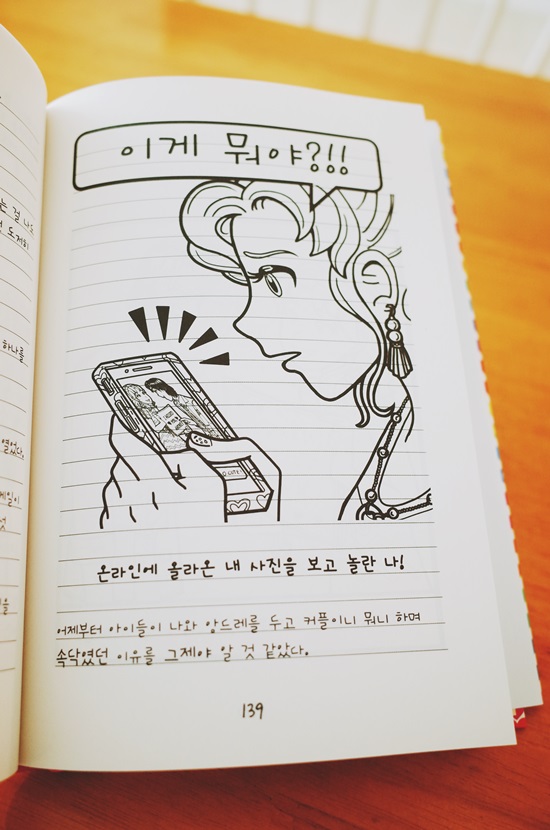 는 걸 나도
하나를
열었다.
이게 뭐야?!!
온라인에 올라온 내 사진을 보고 놀란 나!
어제부터 아이들이 나와 앙드레를 두고 커플이니 뭐니 하며
속닥였던 이유를 그제야 알 것 같았다.
139